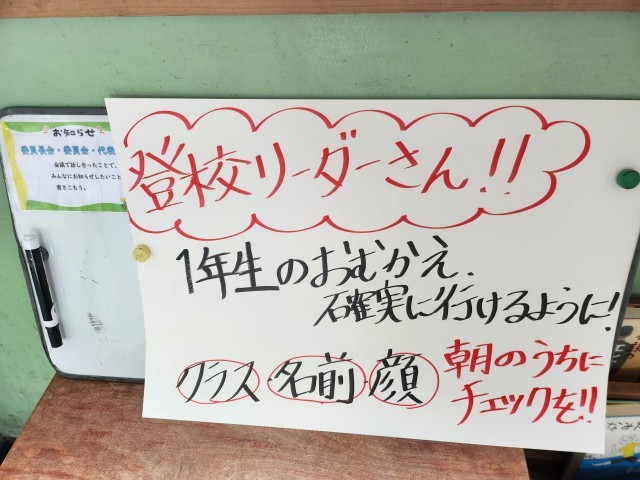 お知らせ
委員長会・委員会・代表
会議で話し合ったことで、
みんなにお知らせしたいこと
書きこもう。
登校リーダーさん!!
1年生のおむかえ、
確実に行けるように!
クラス・名前・顔
朝のうちに
チェックを!!